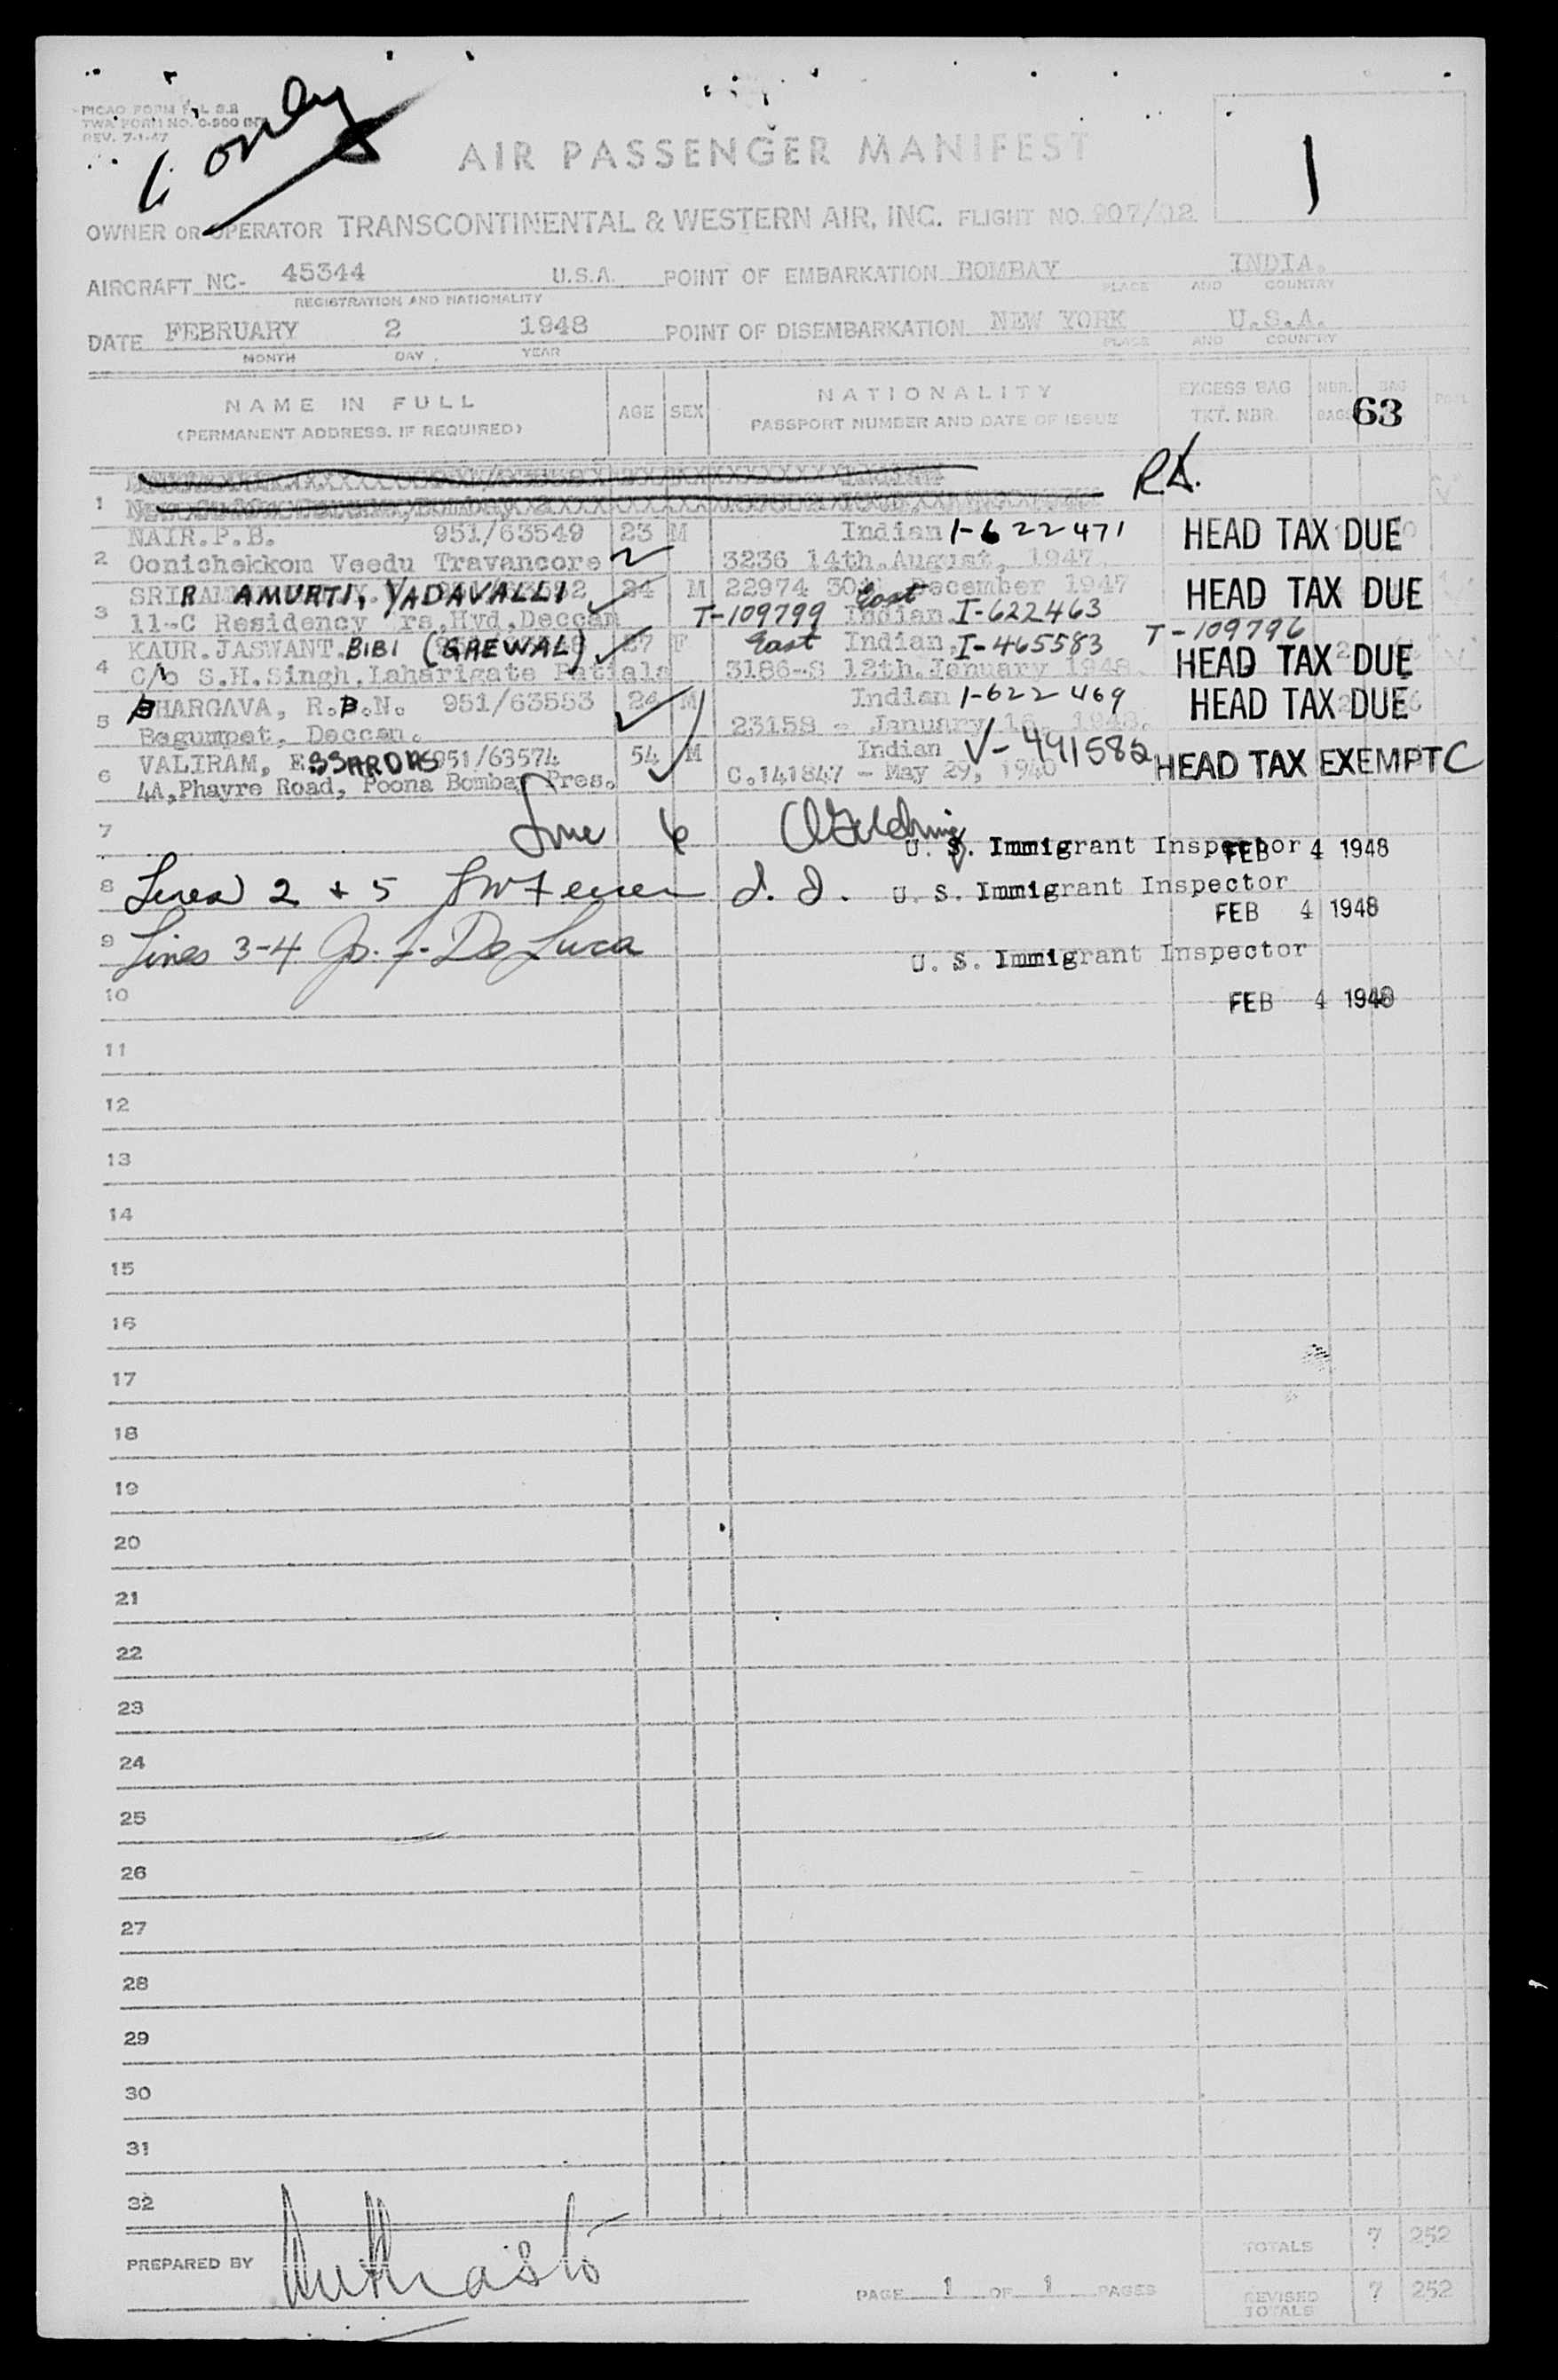 PICAO FORM F-L 5.2
TWA FORM NO. O-900 INT
REV. 7-1-47
1 only
AIR PASSENGER MANIFEST
1
OWNER OR OPERATOR TRANSCONTINENTAL & WESTERN AIR, INC. FLIGHT NO. 907/02
AIRCRAFT NC- 45344 U.S.A. POINT OF EMBARKATION BOMBAY INDIA.
REGISTRATION AND NATIONALITY PLACE AND COUNTRY
DATE FEBRUARY 2 1948 POINT OF DISEMBARKATION NEW YORK U.S.A.
MONTH DAY YEAR PLACE AND COUNTRY
NAME IN FULL AGE SEX NATIONALITY EXCESS BAG NBR. BAG
(PERMANENT ADDRESS, IF REQUIRED) PASSPORT NUMBER AND DATE OF ISSUE TKT. NBR. BAGS 63
1
NAIR.P.B. 951/63549 23 M Indian I-622471 HEAD TAX DUE
2 Oonichekkom Veedu Travancore 3236 14th.August, 1947.
SRIRAMAMURTI, YADAVALLI 24 M 22974 30th December 1947 HEAD TAX DUE
3 11-C Residency rs.Hyd.Deccan T-109799 East Indian I-622463
KAUR.JASWANT.BIBI (GREWAL) 27 F East Indian, I-465583 T-109796
4 C/o S.H.Singh.Laharigate Patiala 3186-S 12th.January 1948. HEAD TAX DUE
BHARGAVA, R.P.N. 951/63553 24 M Indian I-622469 HEAD TAX DUE
5 Begumpet, Deccan. 23158 - January 16, 1948.
VALIRAM, ESSARDAS 951/63574 54 M Indian V-491582 HEAD TAX EXEMPT C
6 4A,Phayre Road, Poona Bombay Pres. C.141847 - May 29, 1940
7 Line 6 U. S. Immigrant Inspector FEB 4 1948
8 Lines 2 + 5 U. S. Immigrant Inspector
FEB 4 1948
9 Lines 3-4 Jos. F. De Luca U. S. Immigrant Inspector
10 FEB 4 1948
11
12
13
14
15
16
17
18
19
20
21
22
23
24
25
26
27
28
29
30
31
32
TOTALS 7 252
PREPARED BY
PAGE 1 OF 1 PAGES REVISED TOTALS 7 252